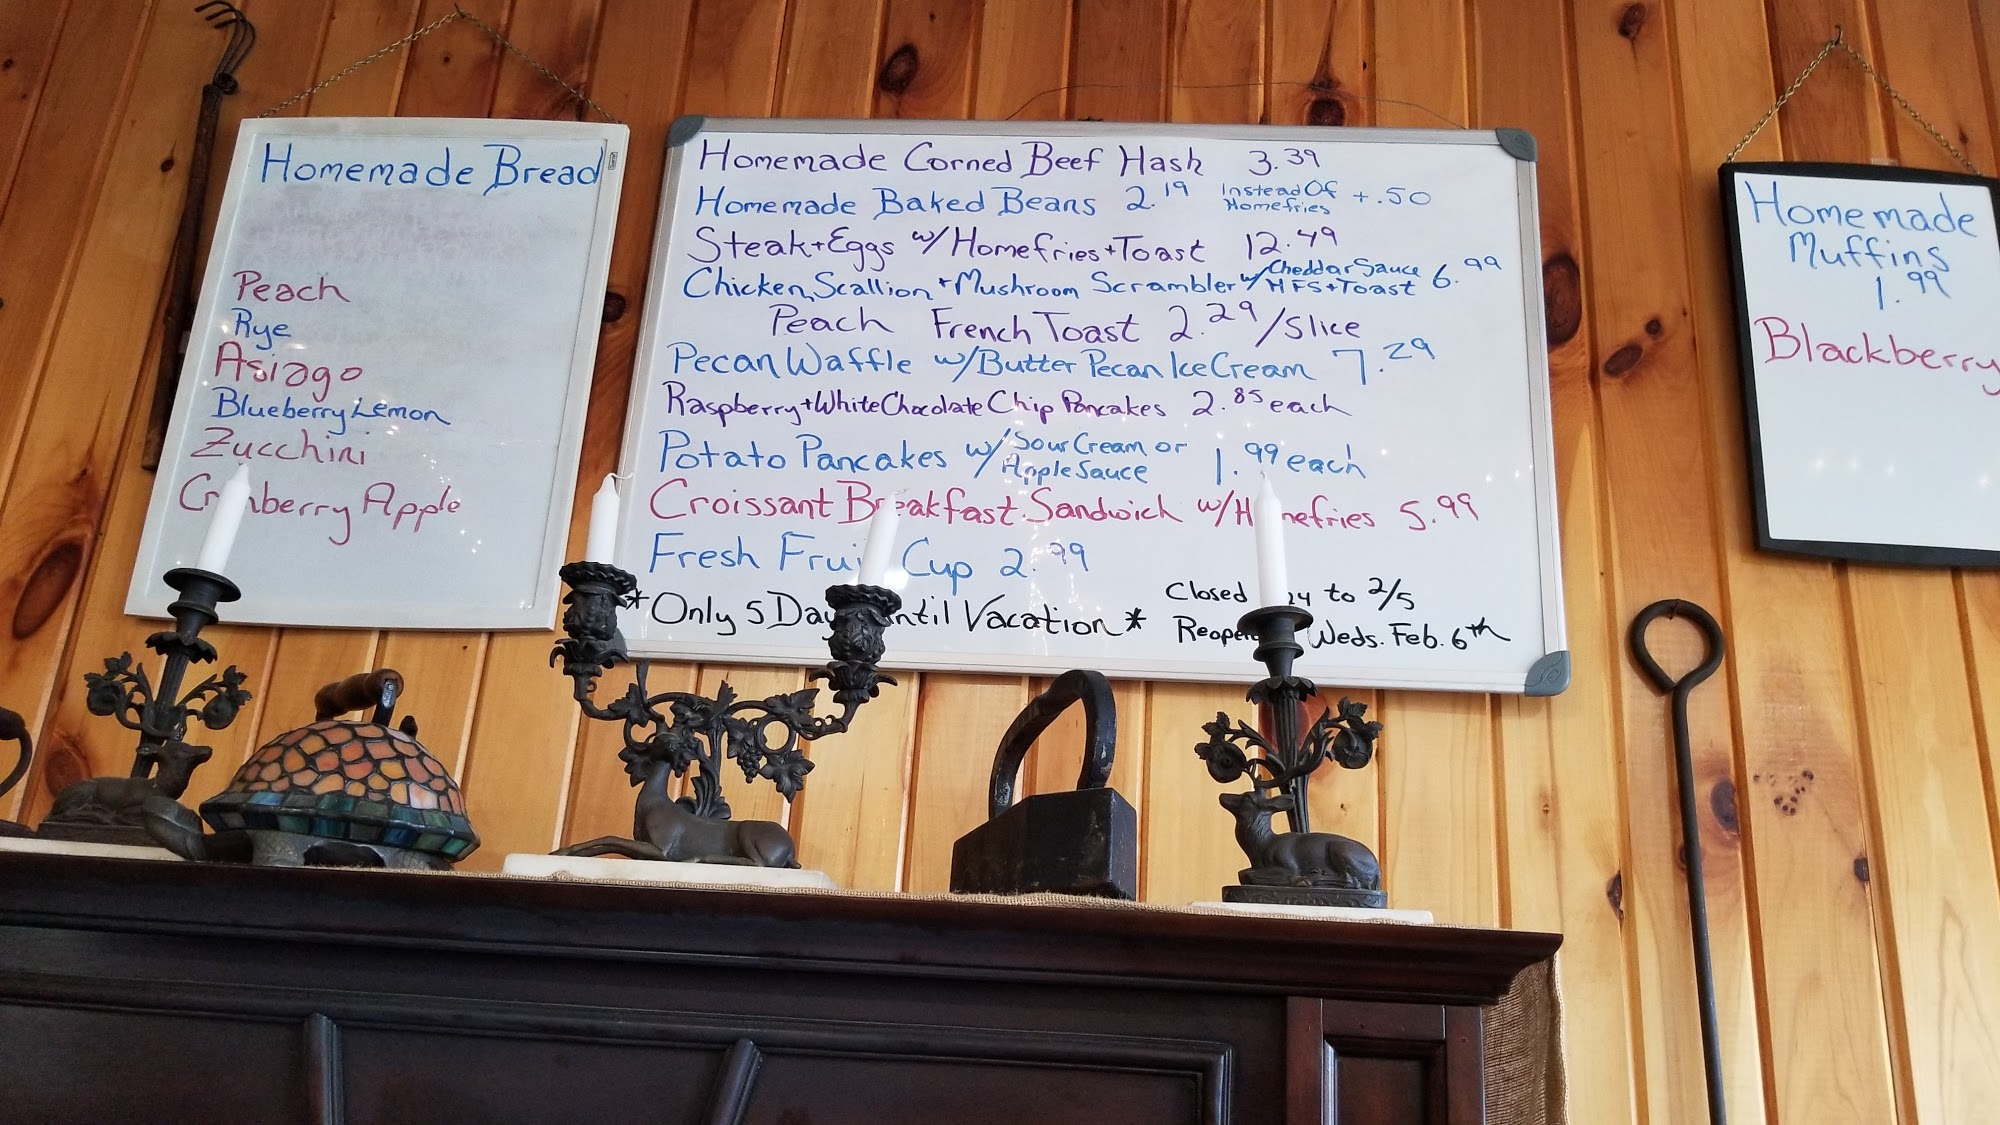 Homemade Bread
Peach
Rye
Asiago
Blueberry Lemon
Zucchini
Cranberry Apple
Homemade Corned Beef Hash 3.39
Homemade Baked Beans 2.19 Instead Of Homefries +.50
Steak + Eggs w/ Homefries + Toast 12.49
Chicken, Scallion + Mushroom Scrambler w/ Cheddar Sauce HFS + Toast 6.99
Peach French Toast 2.29/Slice
Pecan Waffle w/ Butter Pecan Ice Cream 7.29
Raspberry + White Chocolate Chip Pancakes 2.85 each
Potato Pancakes w/ Sour Cream or Apple Sauce 1.99 each
Croissant Breakfast Sandwich w/ Homefries 5.99
Fresh Fruit Cup 2.99
*Only 5 Days Until Vacation*
Closed to 2/5
Reopen Weds. Feb. 6th
Homemade
Muffins
1.99
Blackberry